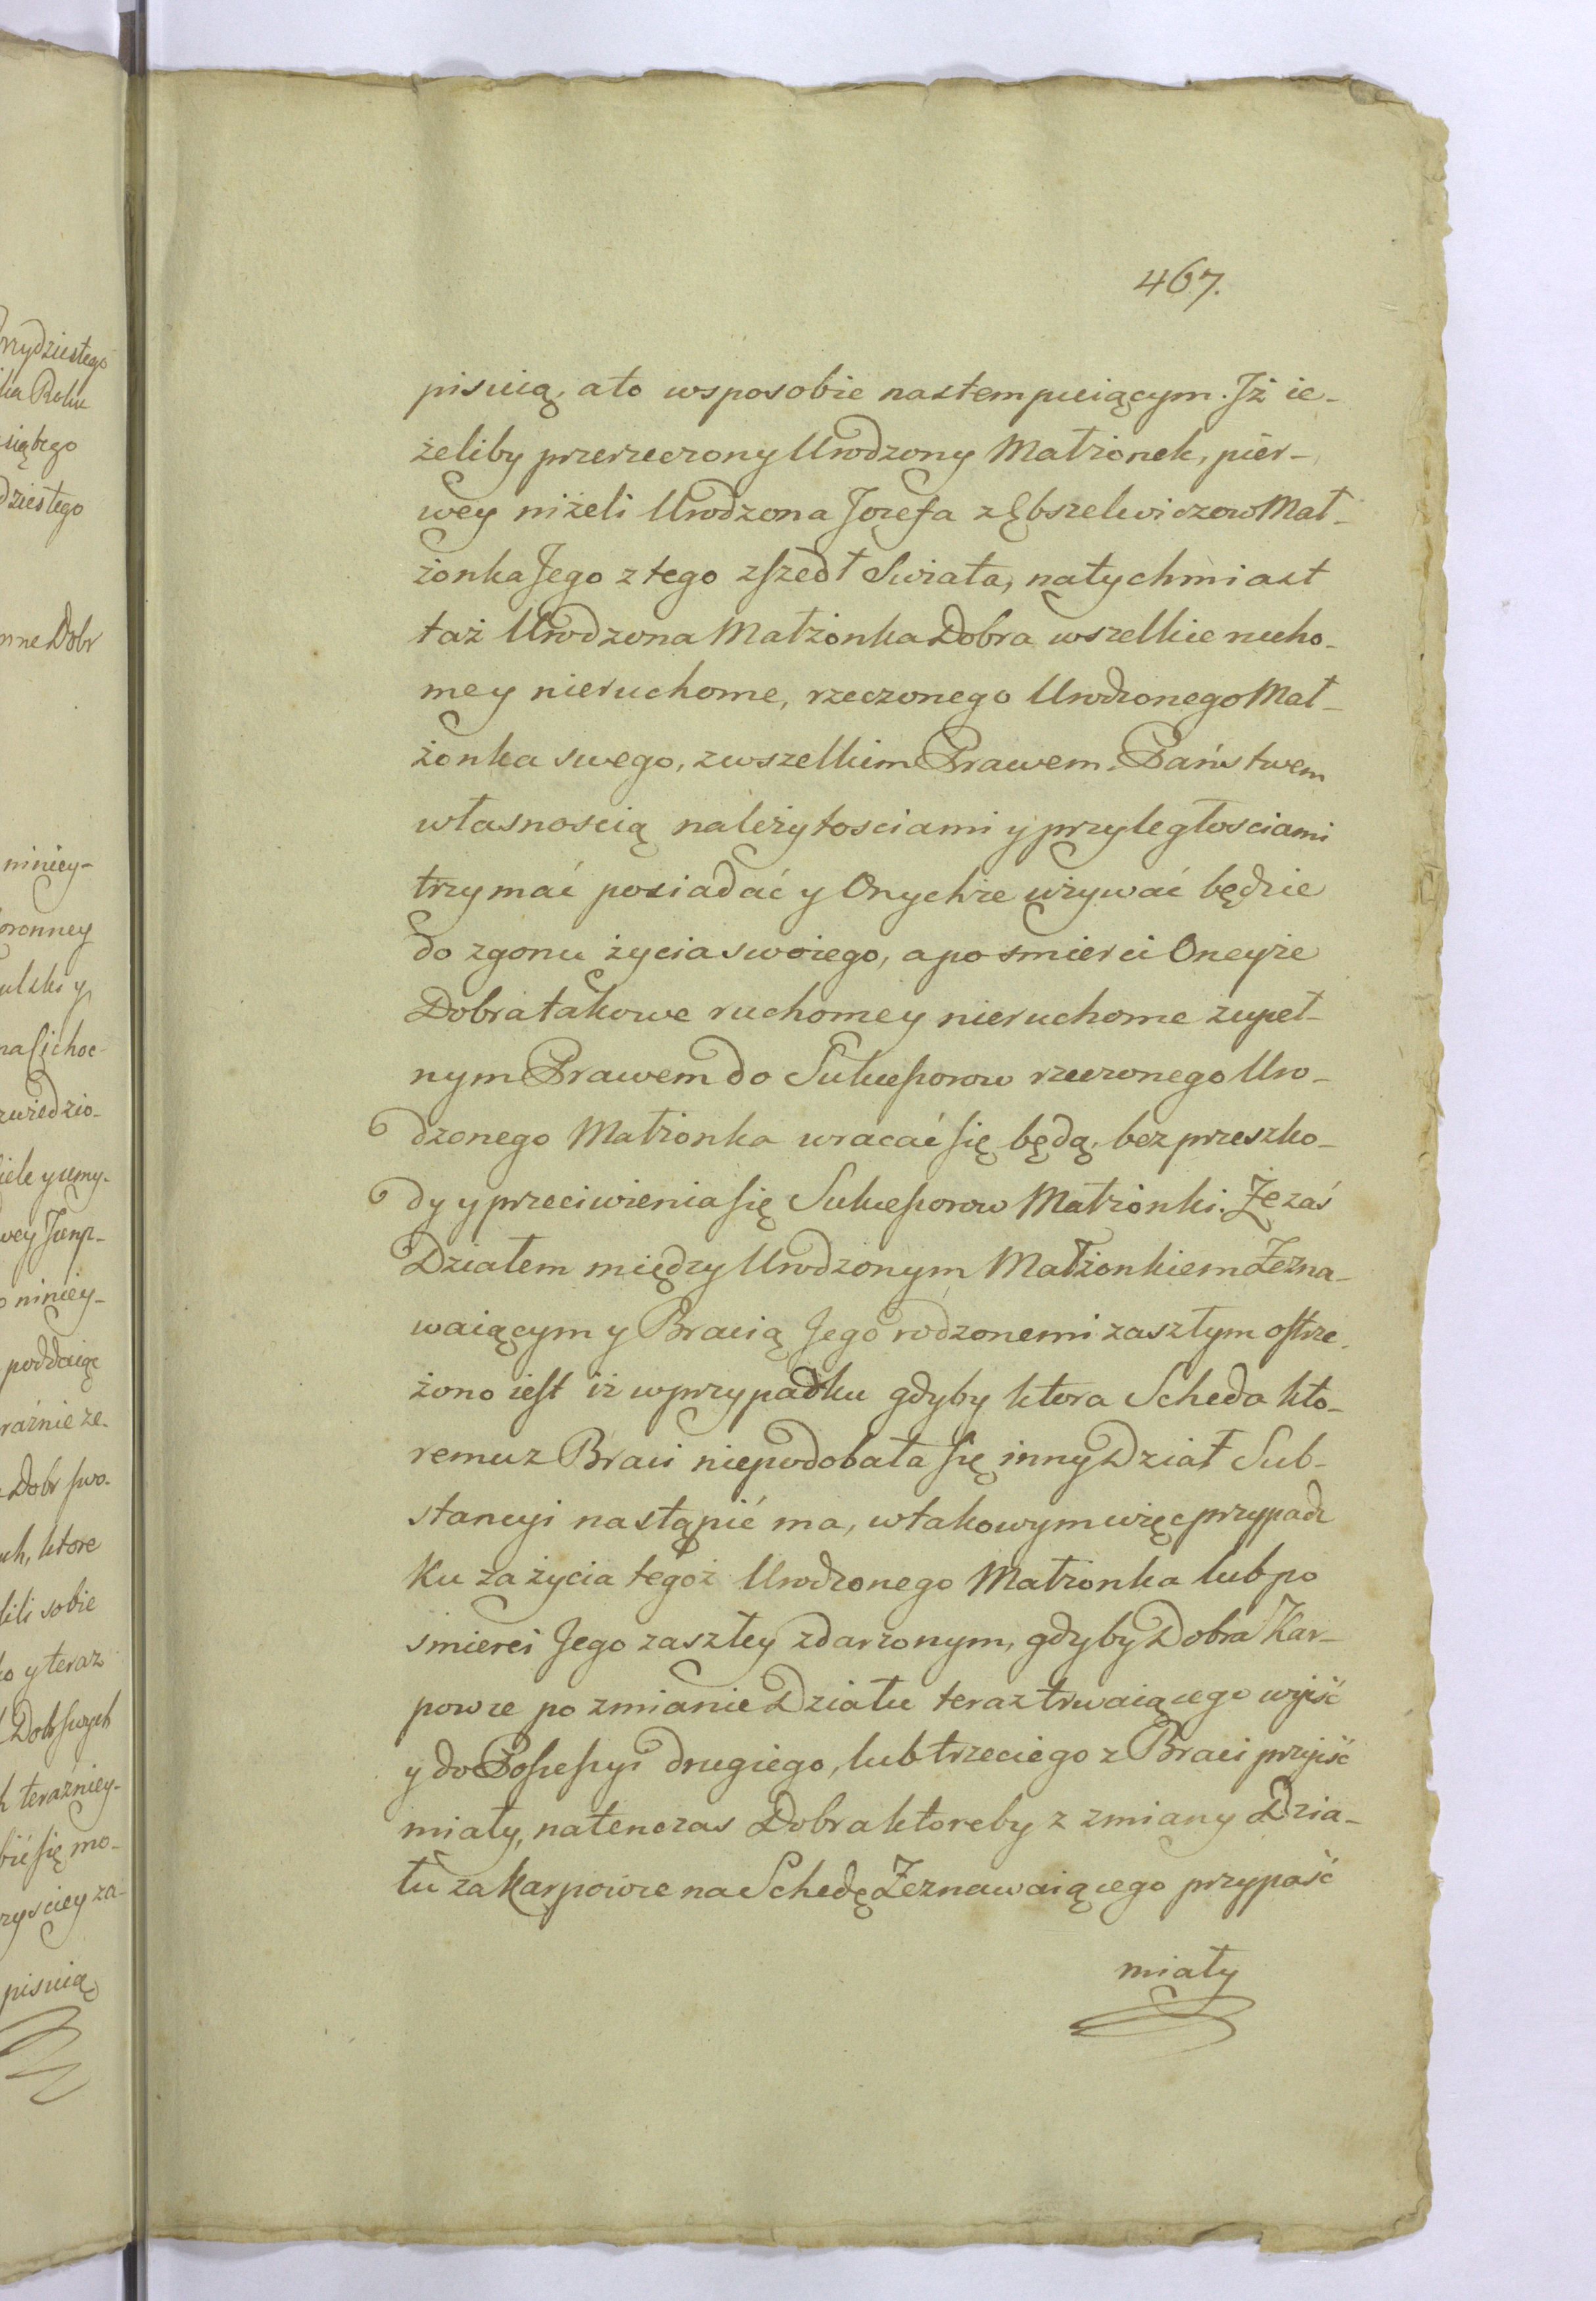 467.
pisuią, ato wsposobie nastempuiącym. Iż ie-
żeliby przerzeczony Urodzony Małżonek, pier-
wey niżeli Urodzona Jozefa z Ebszelwiczow Mał-
żonka Jego z tego zszedł Swiata, natychmiast
taż Urodzona Małżonka Dobra wszelkie rucho-
me y nieruchome, rzeczonego Urodzonego Mał-
żonka swego, zwszelkim Prawem, Państwem
własnoscią należytosciami y przyległosciami
trzymać posiadać y Onychże używać będzie
do zgonu życia swoiego, apo smierci Oneyże
Dobra takowe ruchome y nieruchome zupeł-
nym Prawem do Sukcessorow rzeczonego Uro-
dzonego Małżonka wracać się będą, bez przeszko-
dy y przeciwienia się Sukcessorow Małżonki. Że zaś
Działem między Urodzonym Małżonkiem Zezna-
waiącym y Bracią Jego rodzonemi zaszłym ostrze-
żono iest iż wprzypadku gdyby ktora Scheda kto-
remu z Braci niepodobała się inny Dział Sub-
stancyi nastąpić ma, wtakowym więc przypad-
ku za życia tegoż Urodzonego Małżonka lub po
śmierci Jego zaszłey zdarzonym, gdyby Dobra Kar-
powce po zmianie Działu teraz trwaiącego wyiść
y do Possessyi drugiego, lub trzeciego z Braci przyiść
miały, natenczas Dobra ktoreby z zmiany Dzia-
łu za Karpowce na Schedę Zeznawaiącego przypaść
miały